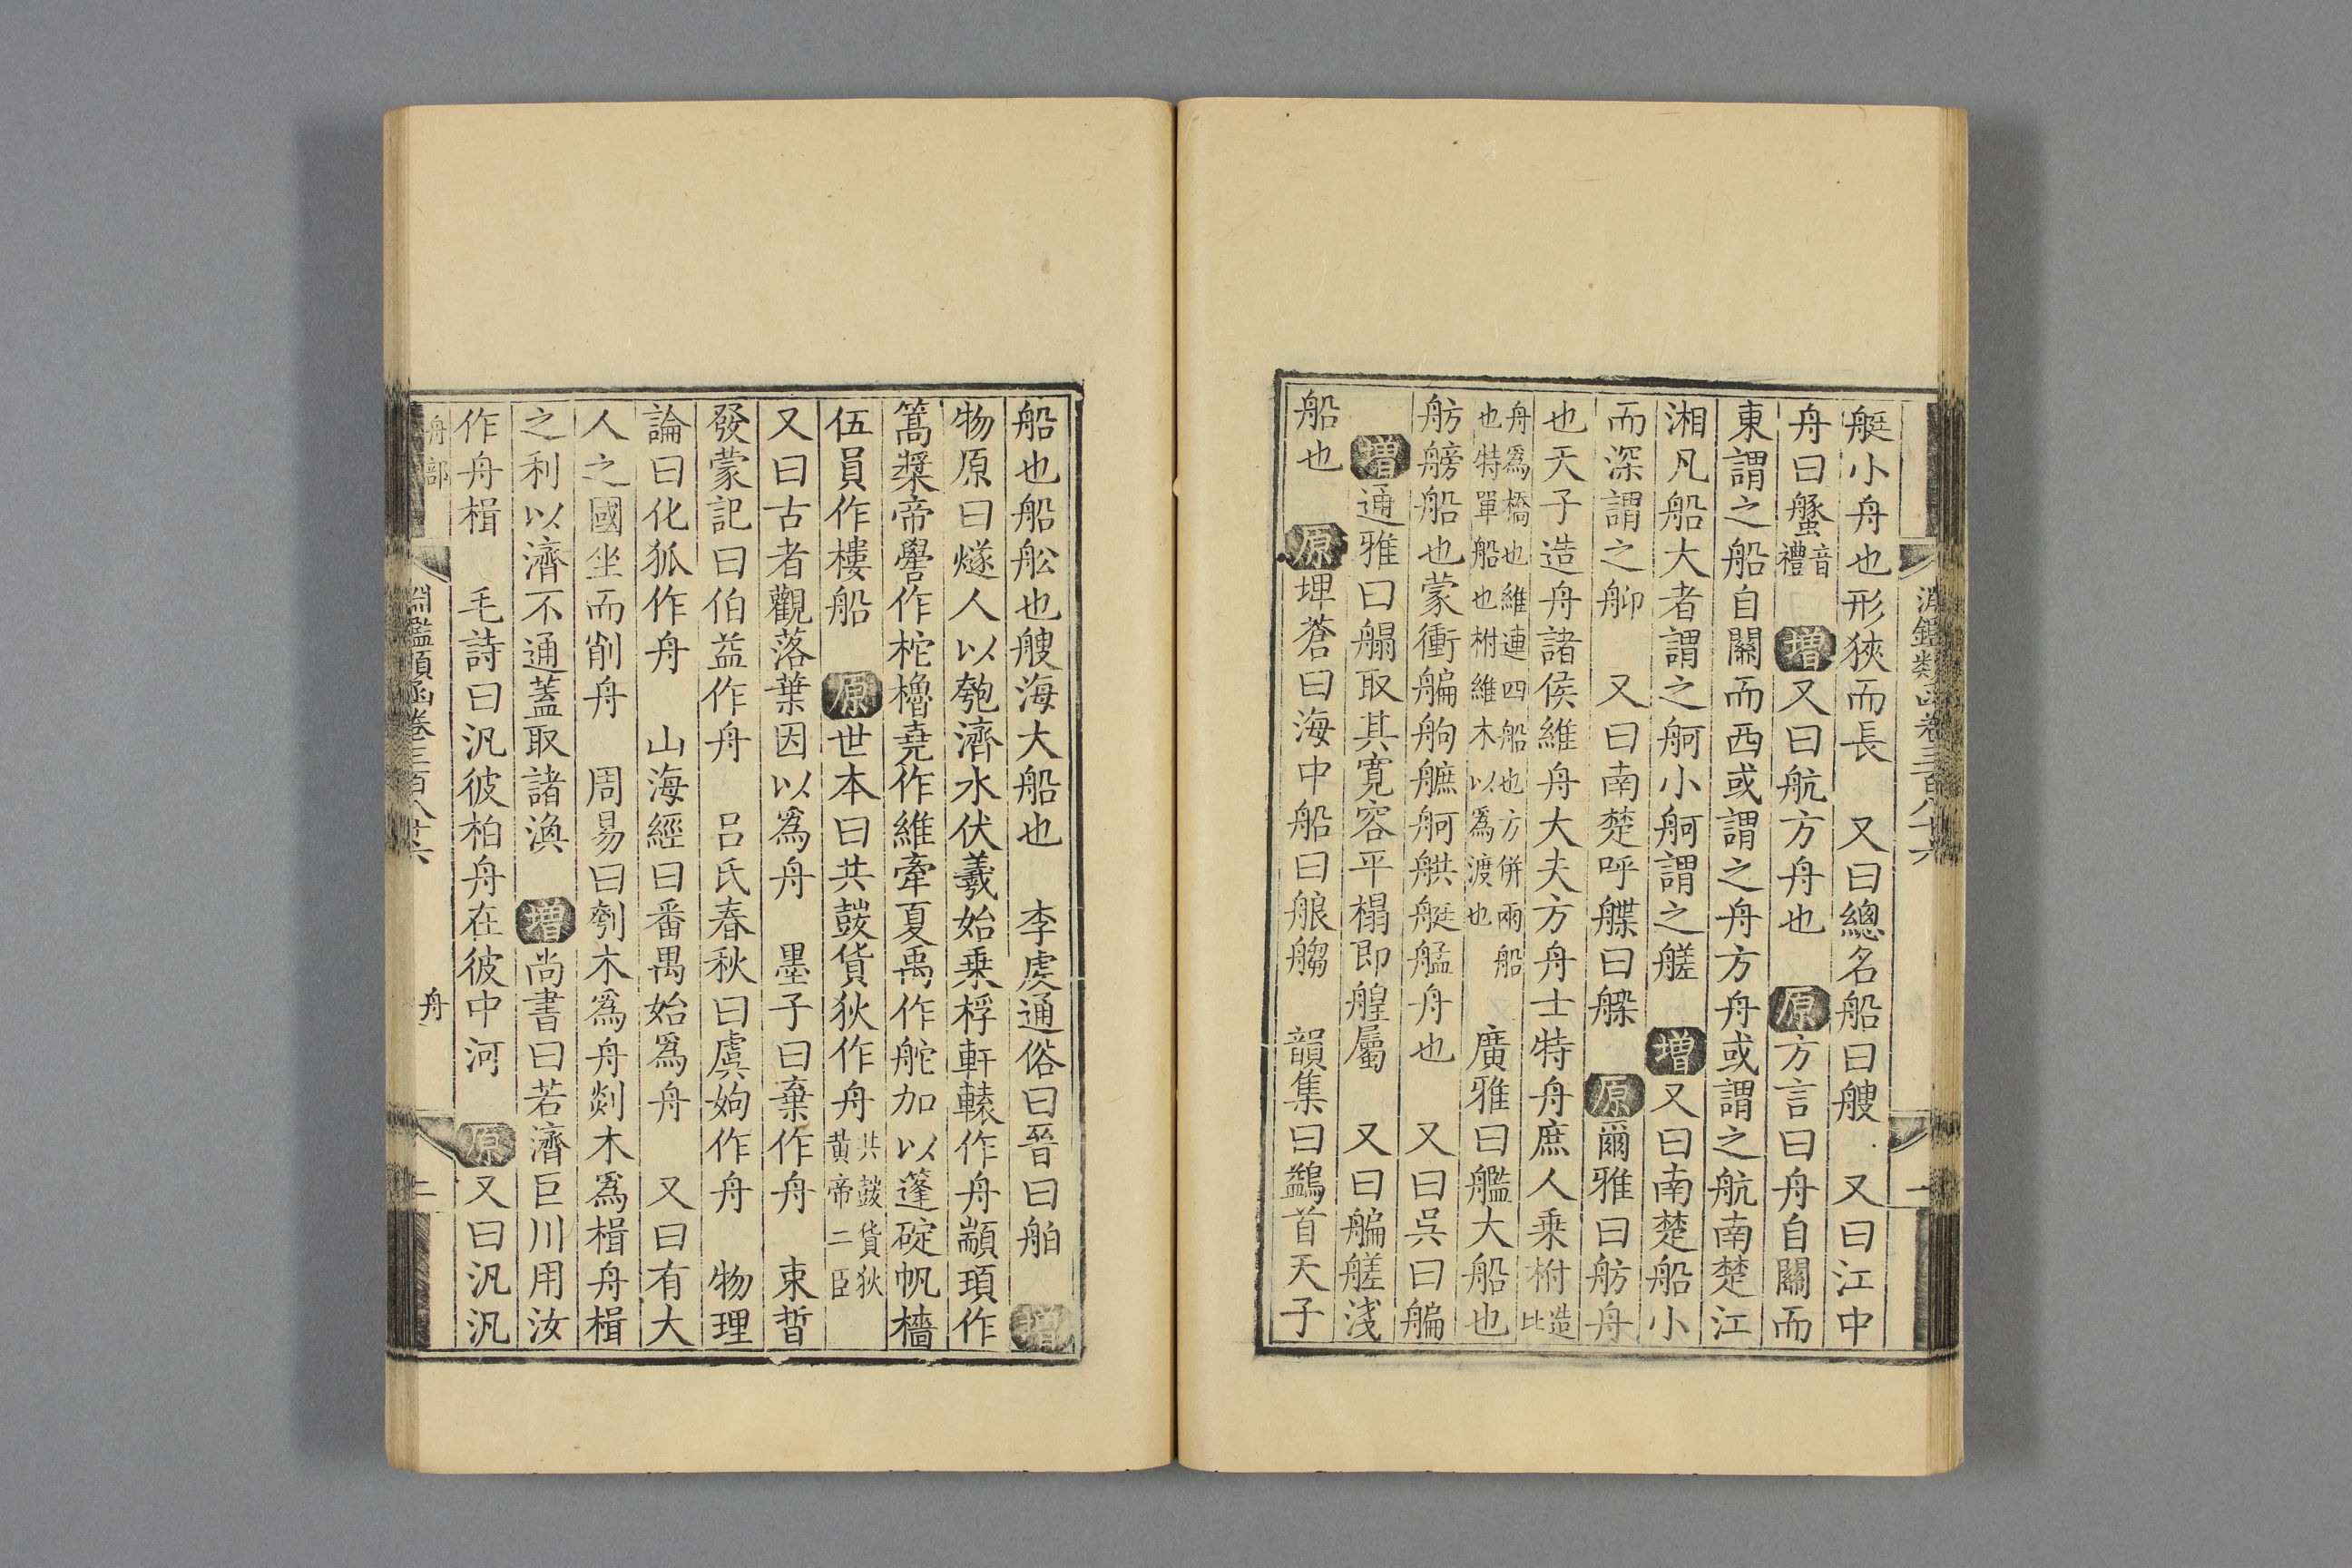 艇小舟也形狹而長　又曰總名船曰艘　又曰江中
舟曰䑺音禮　增又曰航方舟也　原方言曰舟自關而
東謂之船自關而西或謂之舟方舟或謂之航南楚江
湘凡船大者謂之舸小舸謂之艖　增又曰南楚船小
而深謂之䑠　又曰南楚呼艓曰艒　原爾雅曰舫舟
也天子造舟諸侯維舟大夫方舟士特舟庶人乗泭比造
舟爲橋也維連四船也方併兩船
也特單船也泭維木以爲渡也　廣雅曰艦大船也
舫艕船也蒙衝艑䑦艜舸䑪艇艋舟也　又曰吳曰艑
增通雅曰艒取其寬容平榻即艎屬　又曰艑艖淺
船也　原埤蒼曰海中船曰艆䑳　韻集曰鷁首天子
淵鑑類函卷三百八十六
一
船也船舩也艘海大船也　李虔通俗曰晉曰舶　增
物原曰燧人以匏濟水伏羲始乗桴軒轅作舟顓頊作
篙槳帝嚳作柁櫓堯作維牽夏禹作舵加以篷碇帆檣
伍員作樓船　原世本曰共鼓貨狄作舟共鼓貨狄黃帝二臣
又曰古者觀落葉因以爲舟　墨子曰棄作舟　束晳
發蒙記曰伯益作舟　呂氏春秋曰虞姁作舟　物理
論曰化狐作舟　山海經曰番禺始爲舟　又曰有大
人之國坐而削舟　周易曰刳木爲舟剡木爲楫舟楫
之利以濟不通蓋取諸渙　增尚書曰若濟巨川用汝
作舟楫　毛詩曰汎彼柏舟在彼中河　原又曰汎汎
舟部　淵鑑類函卷三百八十六　舟　二